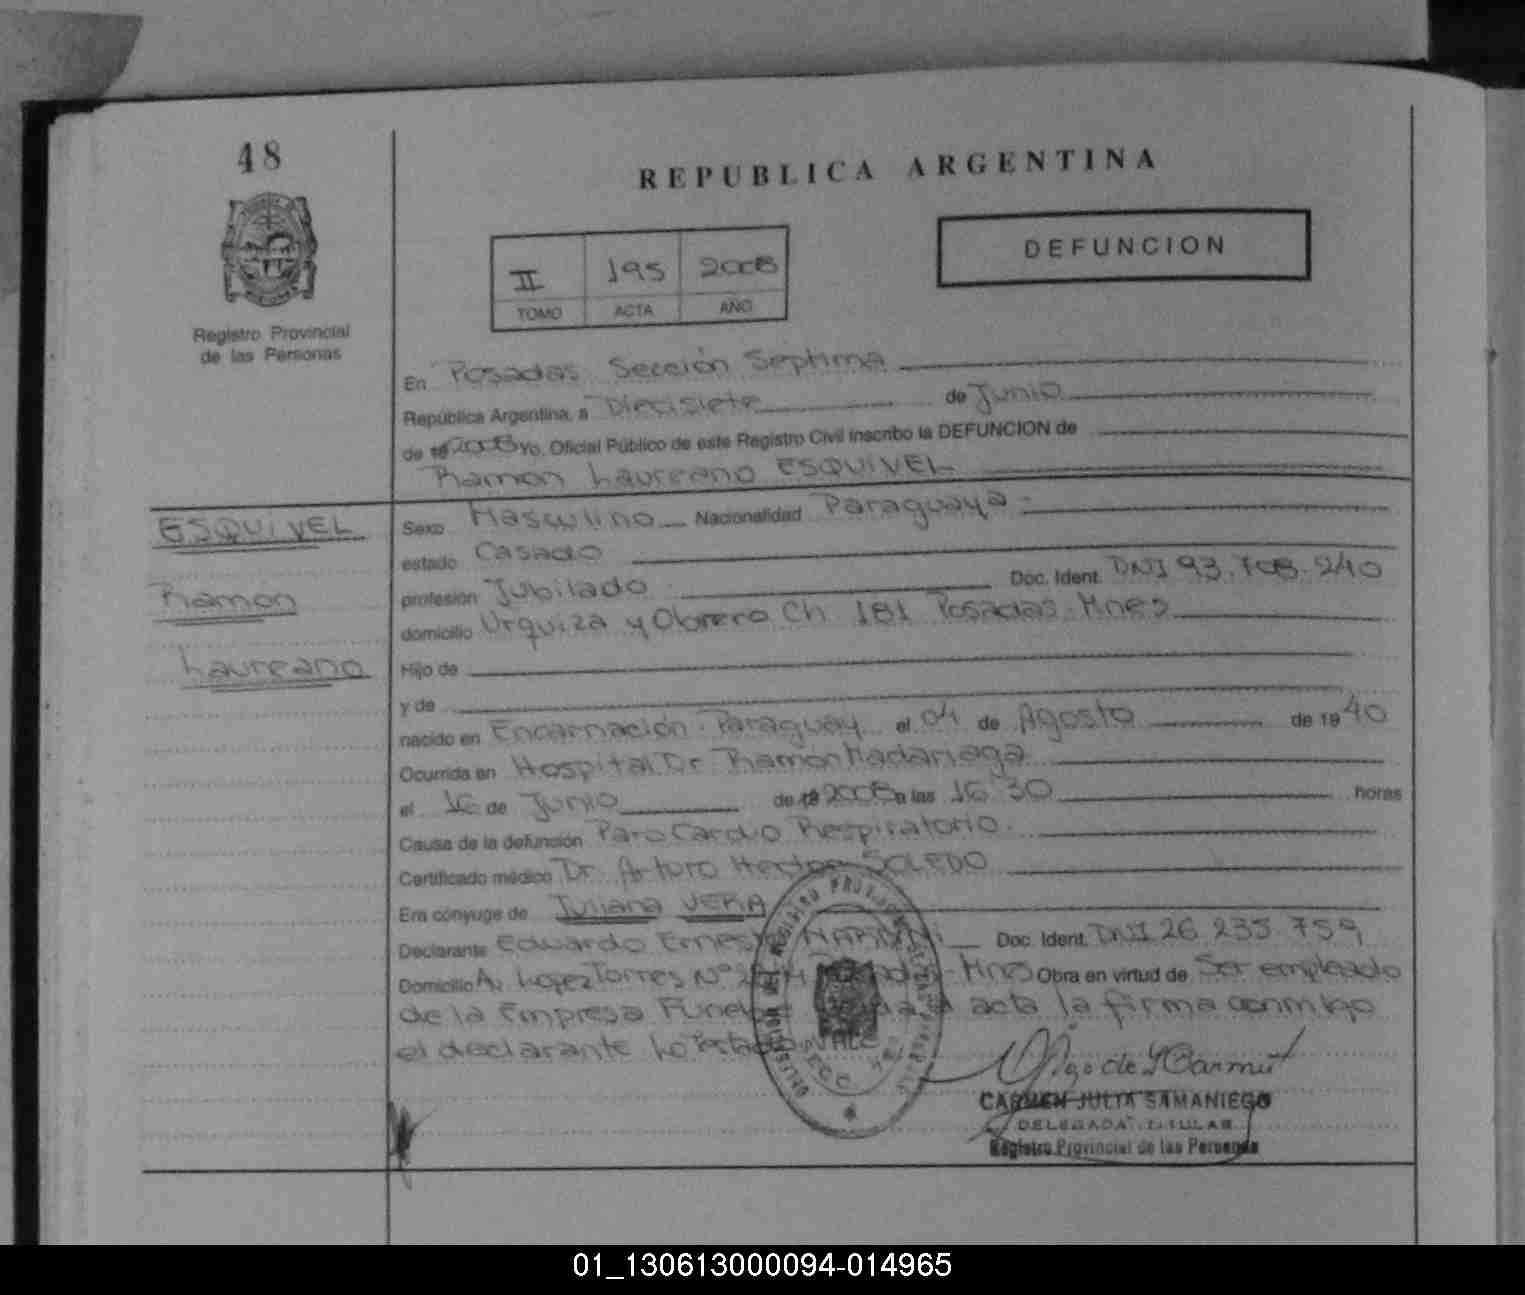 48
REPUBLICA ARGENTINA
DEFUNCION
II 195 2008
TOMO ACTA AÑO
Registro Provincial
de las Personas
En Posadas Sección Septima
República Argentina, a Diecisiete de Junio
de 19 2008 Yo, Oficial Público de este Registro Civil inscribo la DEFUNCION de
Ramon Laureano ESQUIVEL
ESQUIVEL
Ramon
Laureano
Sexo Masculino Nacionalidad Paraguaya
estado Casado
profesión Jubilado Doc. Ident. DNI 93.708.240
domicilio Urquiza y Obrero Ch 181 Posadas Mnes
Hijo de
y de
nacido en Encarnación Paraguay el 04 de Agosto de 1940
Ocurrida en Hospital Dr Ramon Madariaga
el 16 de Junio de 19 2008 a las 16 30 horas
Causa de la defunción Paro Cardio Respiratorio.
Certificado médico Dr. Arturo Hector SOLEDO
Era cónyuge de Juliana VERA
Declarante Eduardo Ernesto Doc. Ident. DNI 26 235 759
Domicilio Av Lopez Torres Nº Mnes Obra en virtud de Ser empleado
de la Empresa acta la firma conmigo
el declarante Lo VALE
CARMEN JULIA SAMANIEGO
DELEGADA TITULAR
Registro Provincial de las Personas
01_130613000094-014965